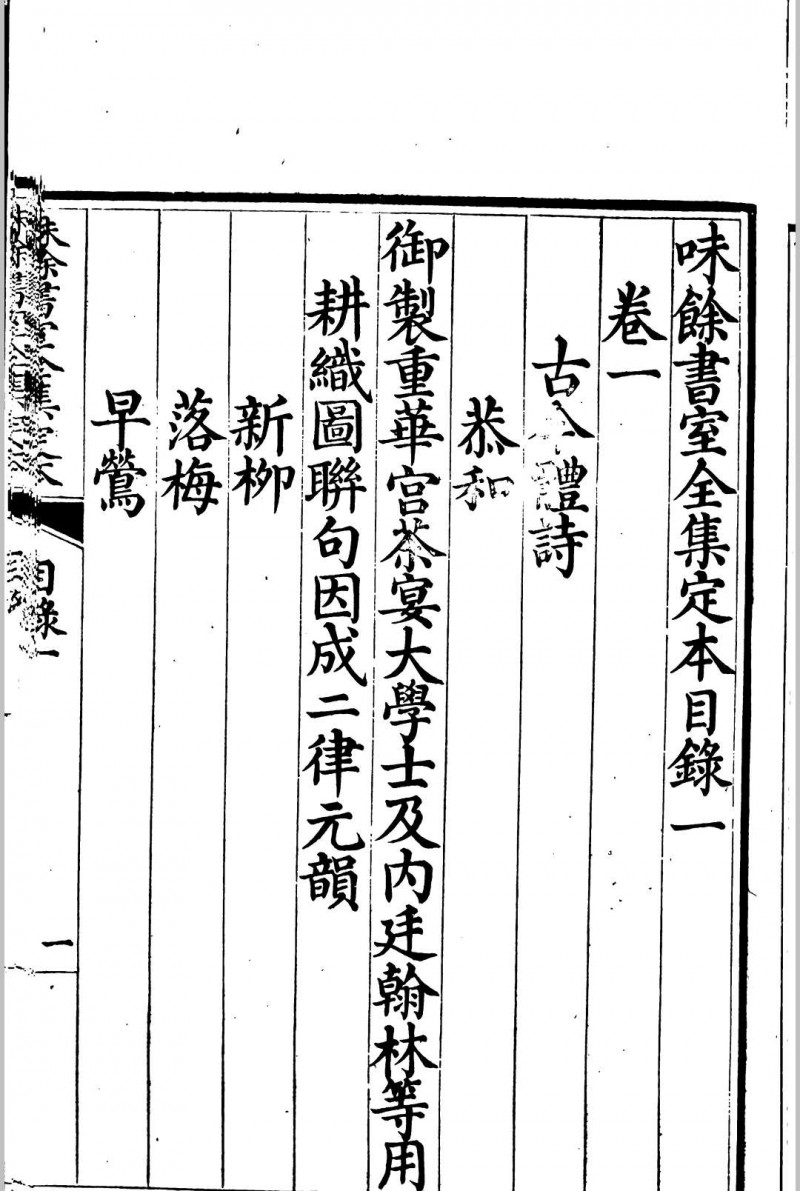 味餘書室全集定本目錄一
卷一
古今體詩
恭和
御製重華宮茶宴大學士及內廷翰林等用
耕織圖聯句因成二律元韻
新柳
落梅
早鶯
味餘書室全集定本
目錄一
一